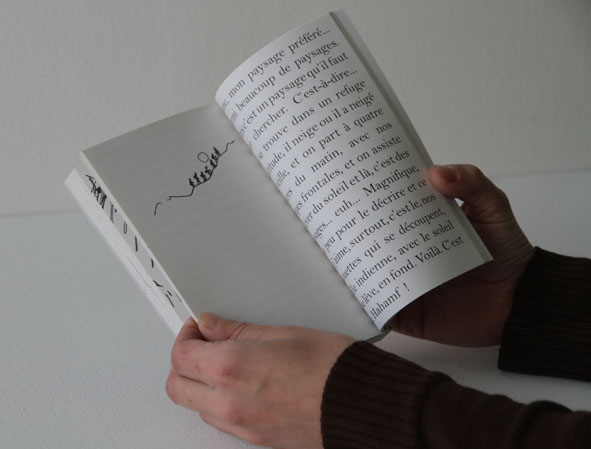 mon paysage préféré...
beaucoup de paysages.
c'est un paysage qu'il faut
chercher. C'est-à-dire...
se trouve dans un refuge
il neige ou il a neigé
et on part à quatre
du matin, avec nos
frontales, et on assiste
du soleil et là, c'est des
euh... Magnifique,
peu pour le décrire et ce
surtout, c'est le, nos
qui se découpent,
indienne, avec le soleil
en fond. Voilà. C'est
Hahamf !